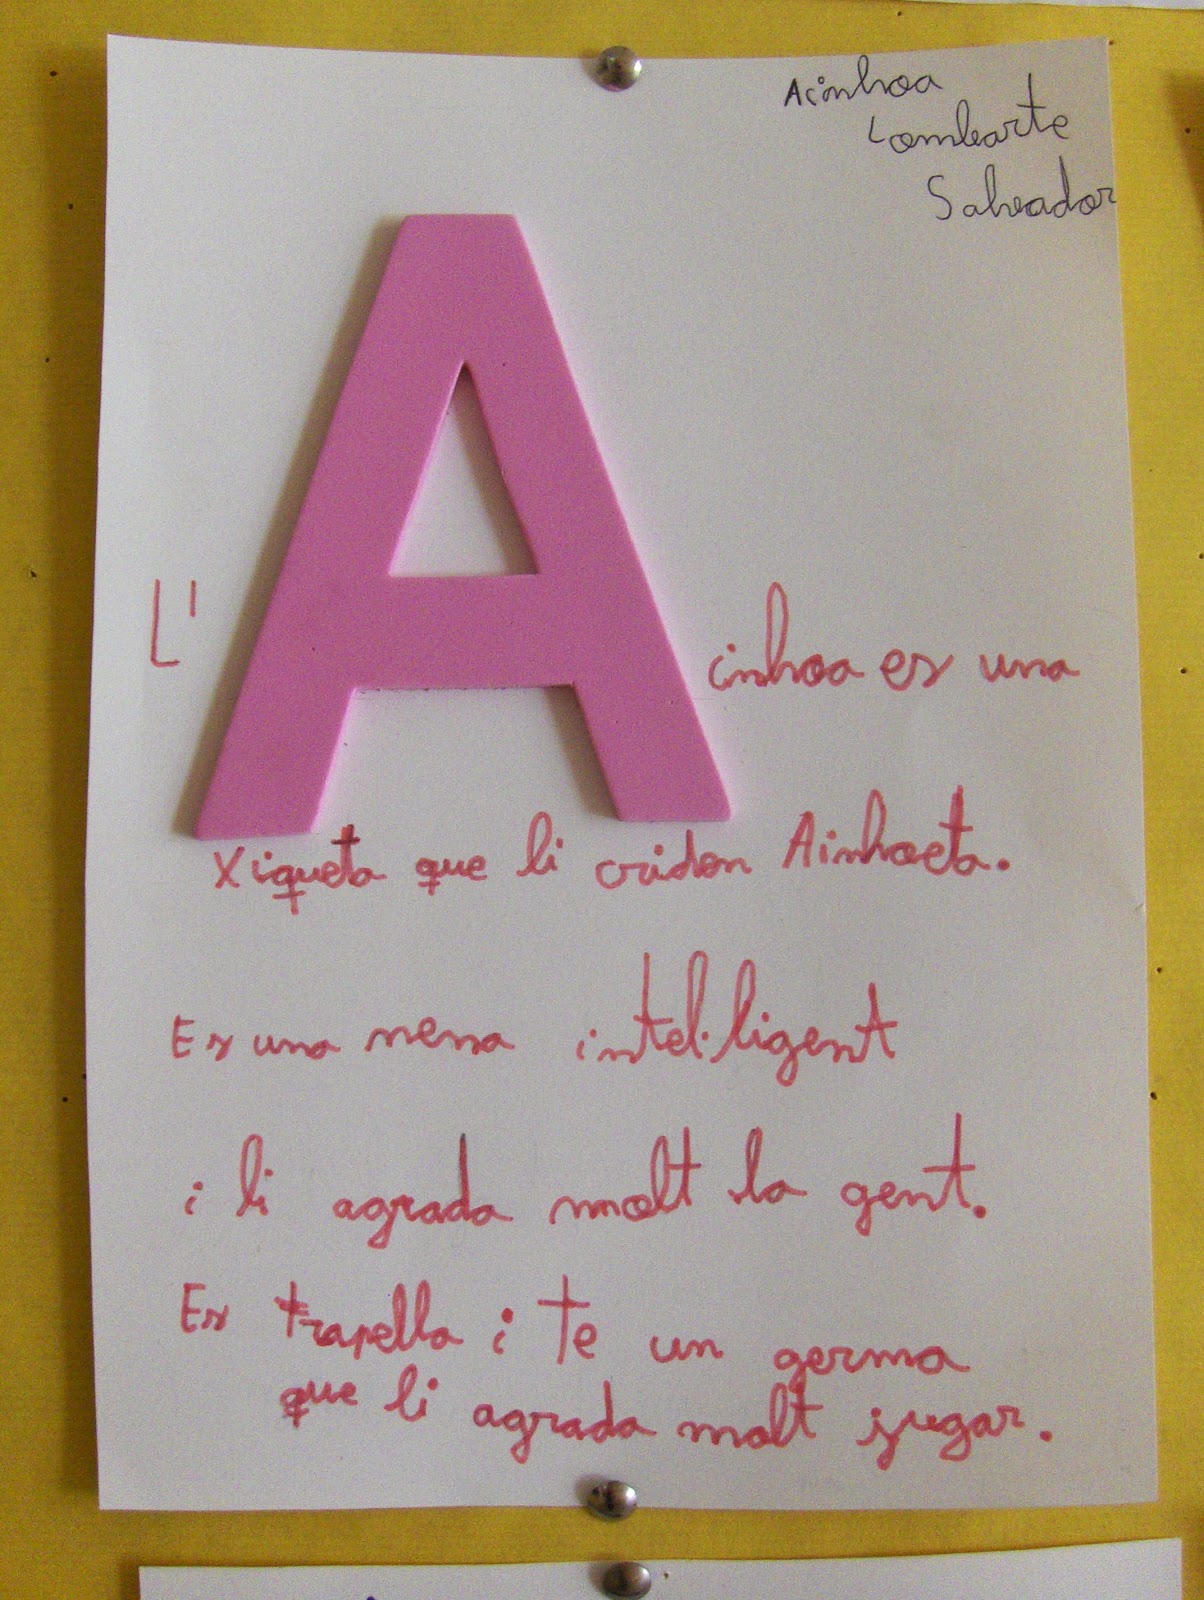 Ainhoa
Lombarte
Salvador
L'Ainhoa es una
Xiqueta que li criden Ainhoeta.
Es una nena intel·ligent
i li agrada molt la gent.
Es trapella i te un germa
que li agrada molt jugar.